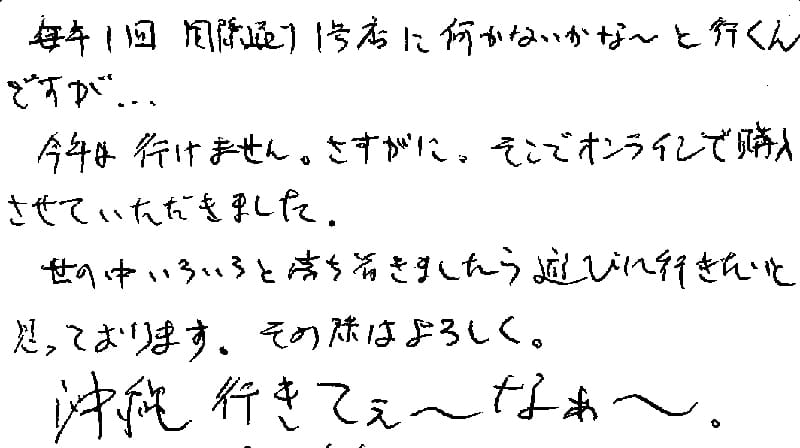 毎年1回 国際通り1号店に何かないかな〜と行くん
ですが...
今年は行けません。さすがに。そこでオンラインで購入
させていただきました.
世の中いろいろと落ち着きましたら遊びに行きたいと
思っております。その際はよろしく。
沖縄行きてぇ〜なぁ〜。